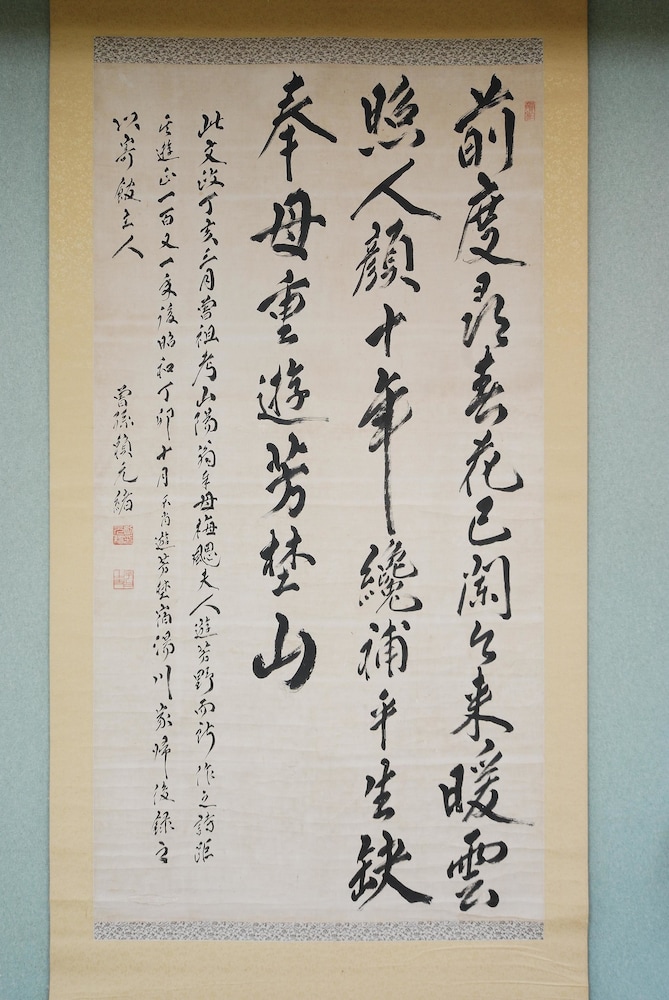 前度尋春花已闌今来暖雲
照人顔十年纔補平生缺
奉母重遊芳埜山
此文政丁亥三月曽祖考山陽翁奉母梅颸夫人遊芳野而所作之詩距
其遊正一百又一年後昭和丁卯十月不肖遊芳埜宿湯川家帰後録之
以寄餃主人
曽孫頼元緒